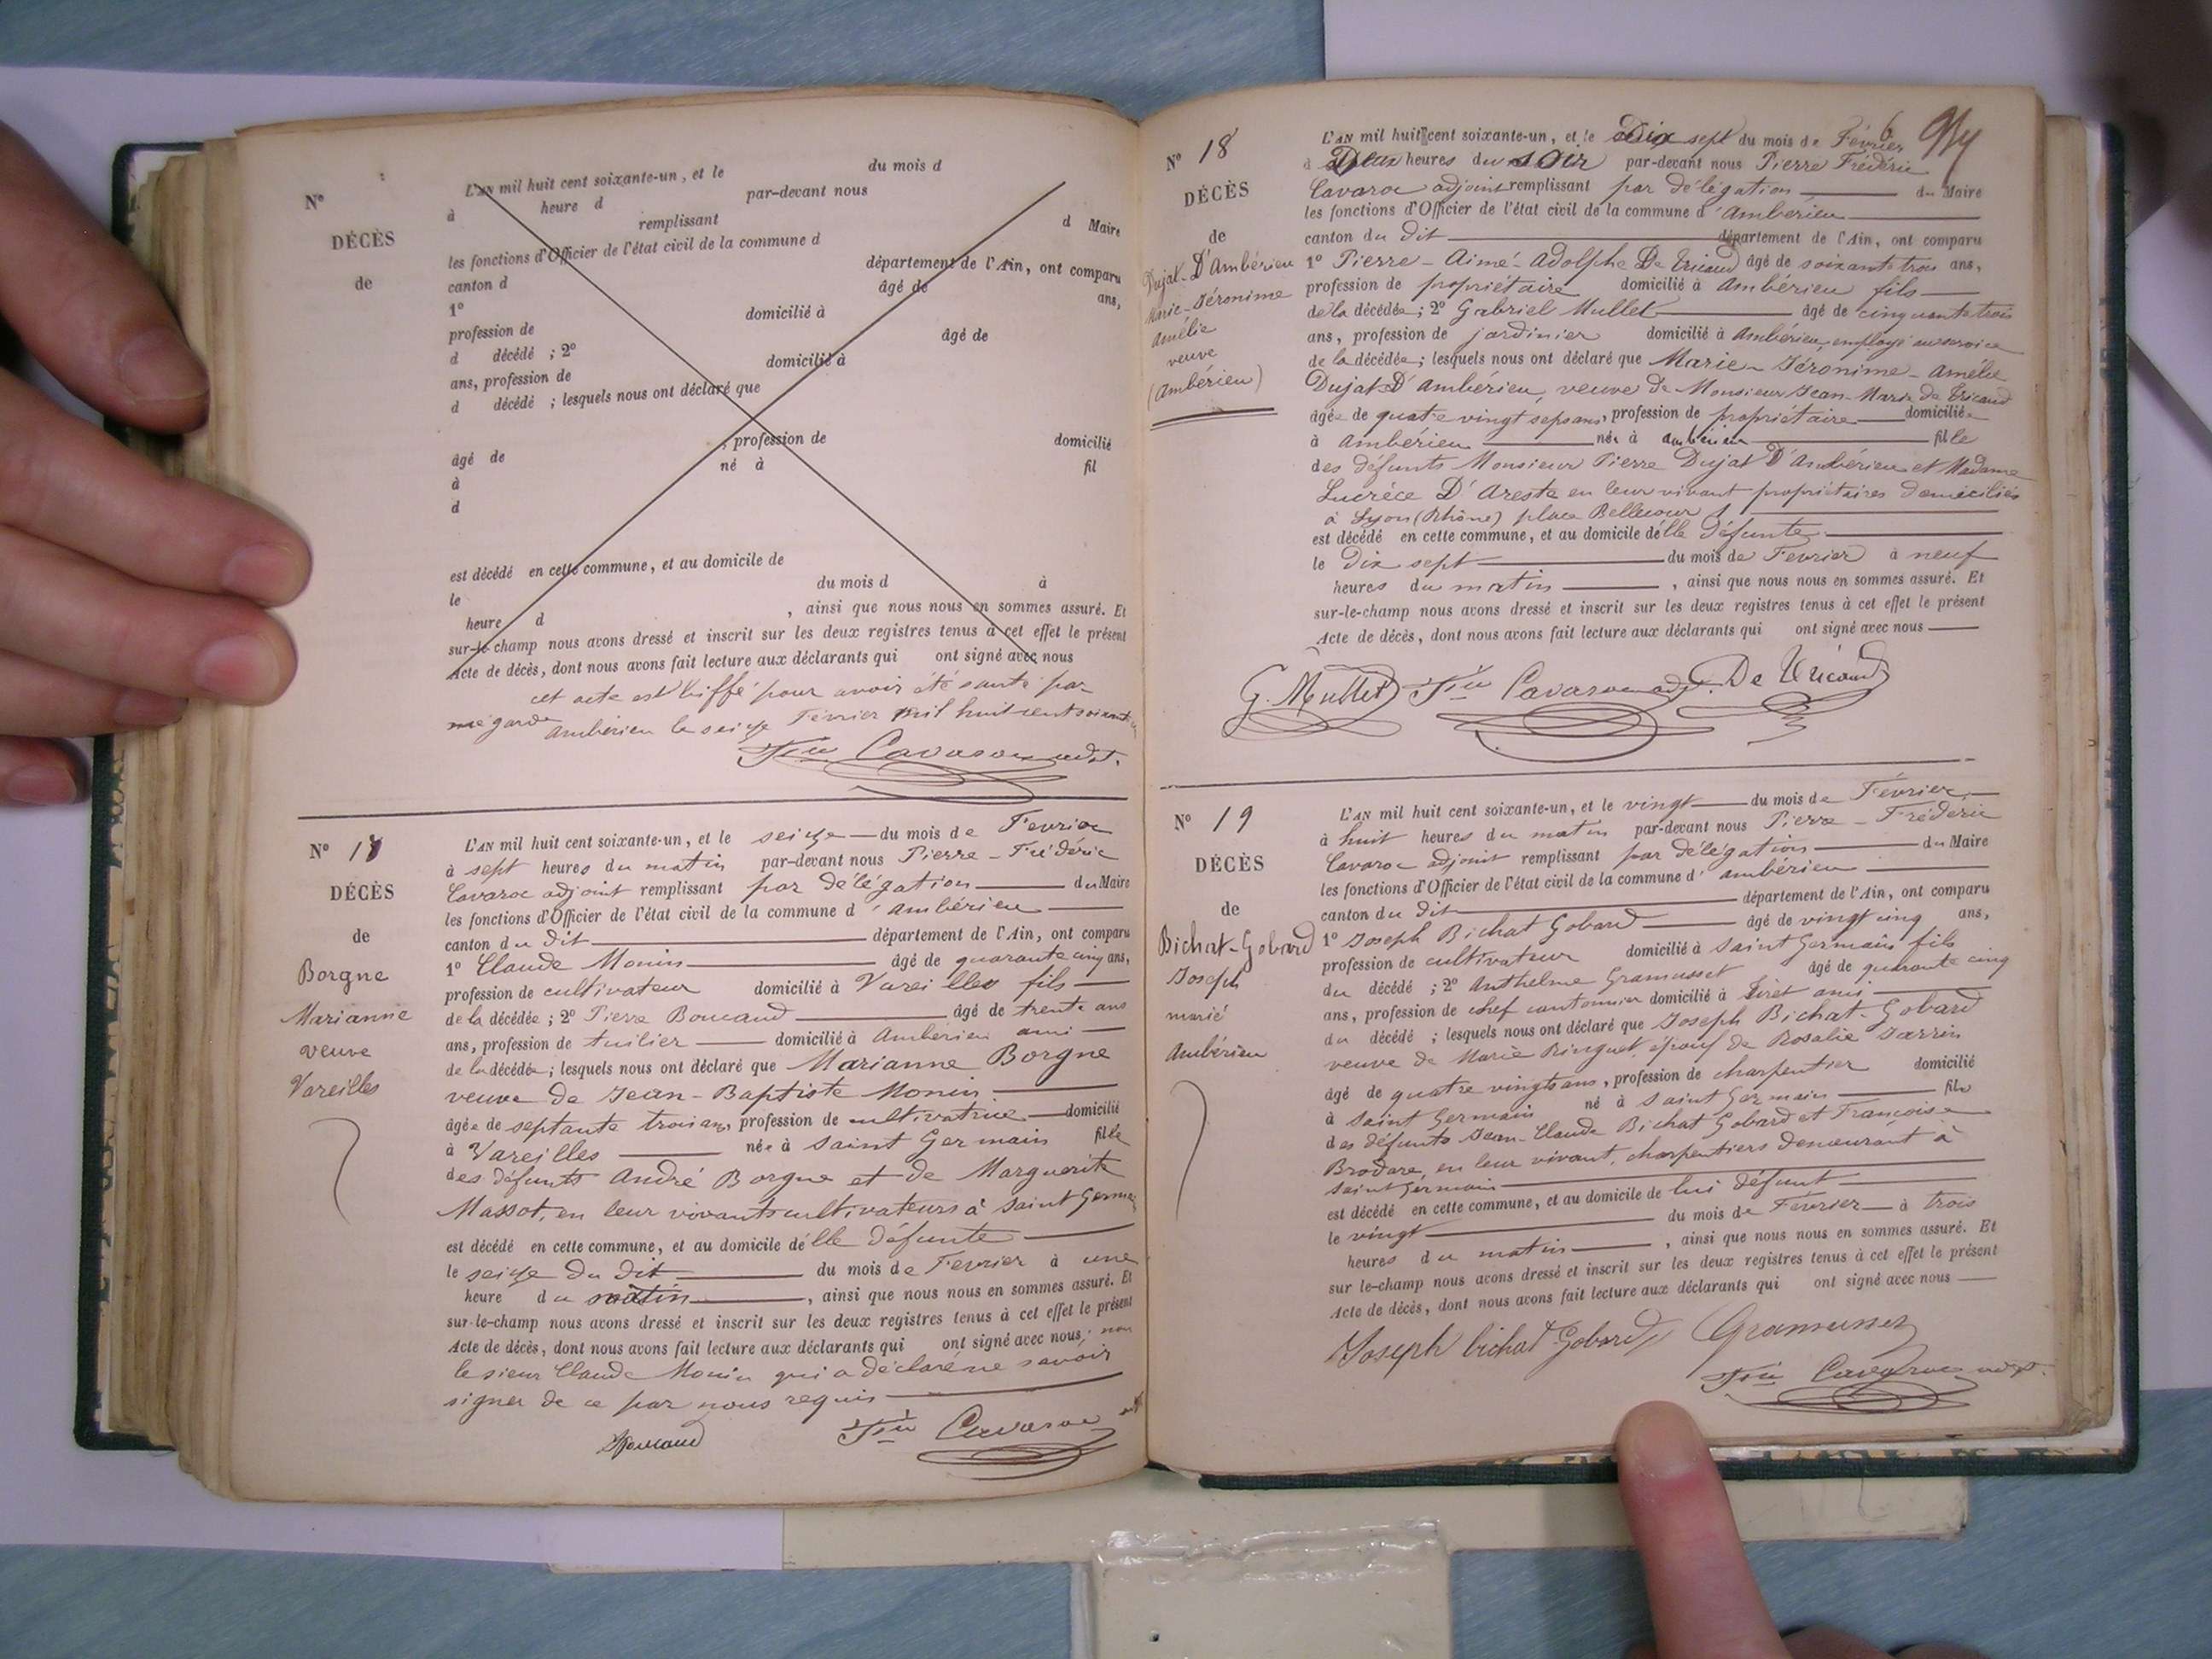 N°
DÉCÈS
de
L'AN mil huit cent soixante-un, et le du mois d
à heure d par-devant nous
remplissant d Maire
les fonctions d'Officier de l'état civil de la commune d
canton d département de l'Ain, ont comparu
1° âgé de ans,
profession de domicilié à
d décédé ; 2° âgé de
ans, profession de domicilié à
d décédé ; lesquels nous ont déclaré que
âgé de , profession de domicilié
à né à fil
d
est décédé en cette commune, et au domicile de
le du mois d à
heure d , ainsi que nous nous en sommes assuré. Et
sur-le-champ nous avons dressé et inscrit sur les deux registres tenus à cet effet le présent
Acte de décès, dont nous avons fait lecture aux déclarants qui ont signé avec nous
cet acte est biffé pour avoir été sauté par
mégarde Ambérieu le seize Février mil huit cent soixante
Fric Cavaroc adjt.
N° 17
DÉCÈS
de
Borgne
Marianne
veuve
Vareilles
L'AN mil huit cent soixante-un, et le seize du mois de Fevrier
à sept heures du matin par-devant nous Pierre-Frédéric
Cavaroc adjoint remplissant par délégation du Maire
les fonctions d'Officier de l'état civil de la commune d'ambérieu
canton du dit département de l'Ain, ont comparu
1° Claude Monin âgé de quarante cinq ans,
profession de cultivateur domicilié à Vareilles fils
de la décédée ; 2° Pierre Boucaud âgé de trente ans
ans, profession de tuilier domicilié à Ambérieu ami
de la décédée ; lesquels nous ont déclaré que Marianne Borgne
veuve de Jean-Baptiste Monin
âgée de septante trois ans, profession de cultivatrice domicilié
à Vareilles née à Saint Germain fille
des défunts André Borgne et de Marguerite
Massot, en leur vivants cultivateurs à Saint Germain
est décédé en cette commune, et au domicile d'elle défunte
le seize du dit du mois de Fevrier à une
heure du matin , ainsi que nous nous en sommes assuré. Et
sur-le-champ nous avons dressé et inscrit sur les deux registres tenus à cet effet le présent
Acte de décès, dont nous avons fait lecture aux déclarants qui ont signé avec nous, non
le sieur Claude Monin qui a déclaré ne savoir
signer de ce par nous requis
Boucaud Fric Cavaroc adjt
N° 18
DÉCÈS
de
Dujat-D'Ambérieu
Marie-Jéronime
Amélie
veuve
(Ambérieu)
L'AN mil huit cent soixante-un, et le Dix sept du mois de Février
à Deux heures du soir par-devant nous Pierre Frédéric
Cavaroc adjoint remplissant par délégation du Maire
les fonctions d'Officier de l'état civil de la commune d'ambérieu
canton du dit département de l'Ain, ont comparu
1° Pierre-Aimé-Adolphe De Tricaud âgé de soixante trois ans,
profession de propriétaire domicilié à Ambérieu fils
de la décédée ; 2° Gabriel Mullet âgé de cinquante trois
ans, profession de jardinier domicilié à Ambérieu, employé au service
de la décédée ; lesquels nous ont déclaré que Marie-Jéronime-Amélie
Dujat D'Ambérieu, veuve de Monsieur Jean-Marie de Tricaud
âgée de quatre vingt sept ans, profession de propriétaire domiciliée
à Ambérieu née à ambérieu fille
des défunts Monsieur Pierre Dujat D'Ambérieu et Madame
Lucrèce D'Areste en leur vivant propriétaires domiciliés
à Lyon (Rhône) place Bellecour
est décédé en cette commune, et au domicile d'elle Défunte
le Dix sept du mois de Fevrier à neuf
heures du matin , ainsi que nous nous en sommes assuré. Et
sur-le-champ nous avons dressé et inscrit sur les deux registres tenus à cet effet le présent
Acte de décès, dont nous avons fait lecture aux déclarants qui ont signé avec nous
G. Mullet Fric Cavaroc adjt. De Tricaud
N° 19
DÉCÈS
de
Bichat-Gobard
Joseph
marié
Ambérieu
L'AN mil huit cent soixante-un, et le vingt du mois de Février
à huit heures du matin par-devant nous Pierre-Fréderic
Cavaroc adjoint remplissant par délégation du Maire
les fonctions d'Officier de l'état civil de la commune d'ambérieu
canton du dit département de l'Ain, ont comparu
1° Joseph Bichat Gobard âgé de vingt cinq ans,
profession de cultivateur domicilié à Saint Germain fils
du décédé ; 2° Anthelme Gramusset âgé de quarante cinq
ans, profession de chef cantonnier domicilié à Tiret ami
du décédé ; lesquels nous ont déclaré que Joseph Bichat-Gobard
veuve de Marie Ringuet, époux de Rosalie Jarrin
âgé de quatre vingts ans, profession de charpentier domicilié
à Saint Germain né à Saint Germain fils
des défunts Jean-Claude Bichat Gobard et Françoise
Brodare, en leur vivant, charpentiers demeurant à
Saint Germain
est décédé en cette commune, et au domicile de lui défunt
le vingt du mois de Février à trois
heures du matin , ainsi que nous nous en sommes assuré. Et
sur le-champ nous avons dressé et inscrit sur les deux registres tenus à cet effet le présent
Acte de décès, dont nous avons fait lecture aux déclarants qui ont signé avec nous
Joseph bichat Gobard Gramusset
Fric Cavaroc adjt.